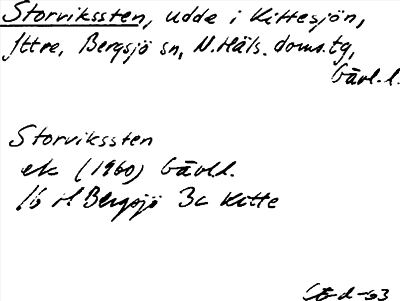 Storvikssten, udde i Kittesjön,
Yttre, Bergsjö sn, N. Häls. doms. tg,
Gävl. l.
Storvikssten
ek (1960) Gävl.l.
16 H Bergsjö 3c Kitte